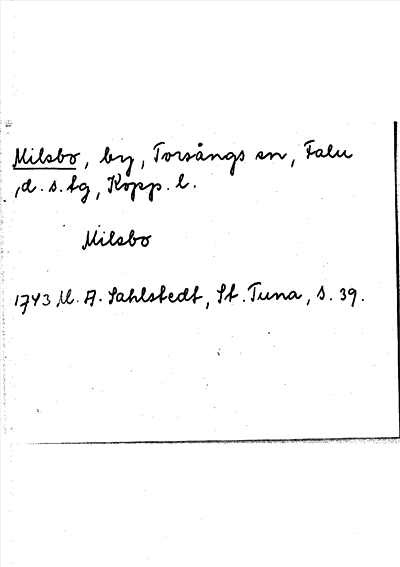 Milsbo, by, Torsångs sn, Falu
d. s. tg, Kopp. l.
Milsbo
1743 M. A. Sahlstedt, St. Tuna, s. 39.